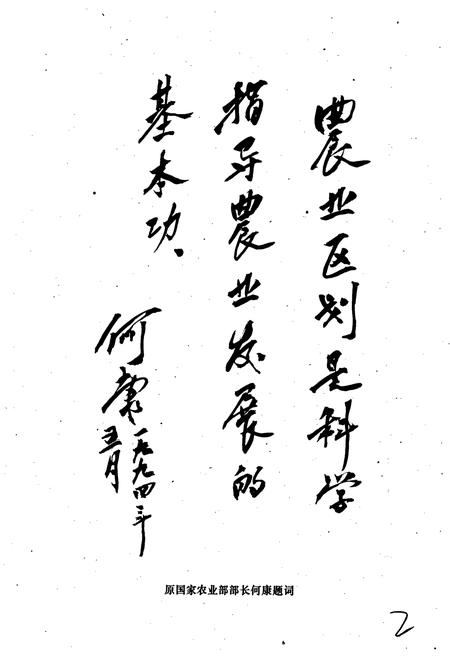 農业区划是科学
指导農业发展的
基本功.
何康
一九九四年
五月
原国家农业部部长何康题词
2